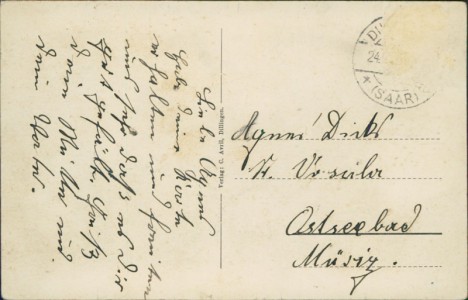 Liebe Agnes
Habe deine Karte
erhalten und
mich daß es Dir
gut gefällt. Gruß
deine Mutter und
dein Vater.
Verlag: C. Avril, Dillingen.
DI
24.
* (SAAR)
Agnes Dicks
St. Ursula
Ostseebad
Müritz.